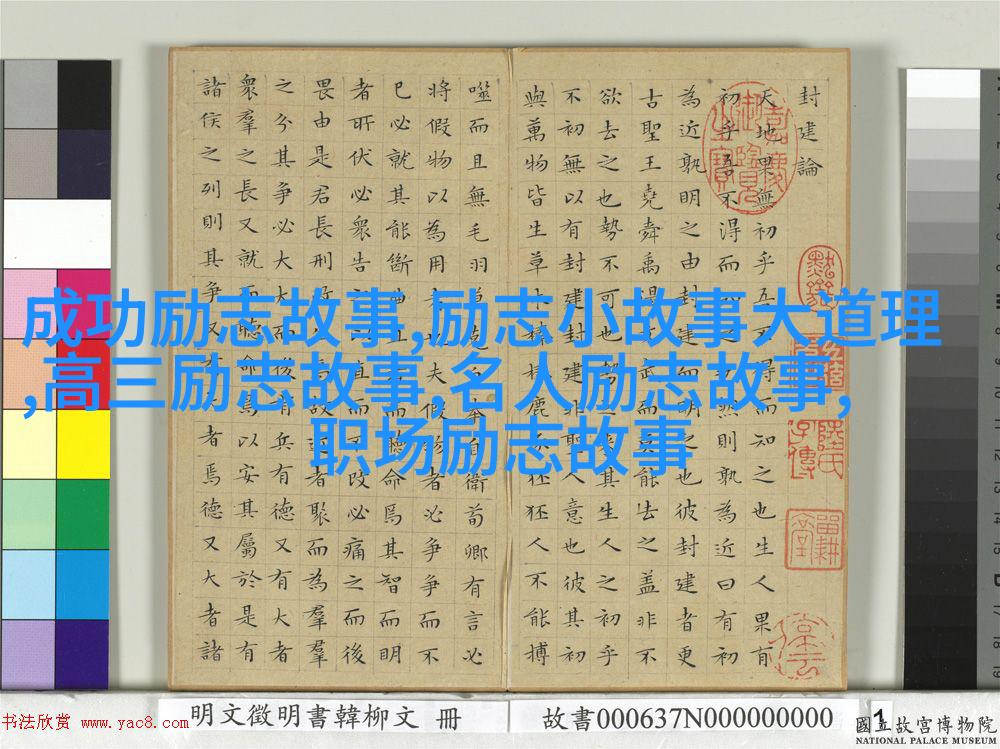 成功励志故事,励志小故事大道理
,高三励志故事,名人励志故事,
职场励志故事
封建論
天地果無初乎吾不得而知之也生人果有
初乎吾不得而知之也然則孰為近曰有初
為近孰明之由封建而明之也彼封建者更
古聖王堯舜禹湯文武而莫能去之蓋非不
欲去之也勢不可也勢之來其生人之初乎
不初無以有封建封建非聖人意也彼其初
與萬物皆生草木榛榛鹿豕狉狉人不能搏
噬而且無毛羽莫克自奉自衛荀卿有言必
將假物以為用者也夫假物者必爭爭而不
已必就其能斷曲直者而聽命焉其智而明
者所伏必眾告之以直而不改必痛之而後
畏由是君長刑政生焉故近者聚而為羣
之分其爭必大大而後有兵有德又有大者
眾羣之長又就而聽命焉以安其屬於是有
諸侯之列則其爭又有大者焉德又大者諸
嘉慶御覽之寶
书法欣赏 www.yac8.com
明文徵明書韓柳文 冊
故書000637N000000000
1
國立故宮博物院
NATIONAL PALACE MUSEUM